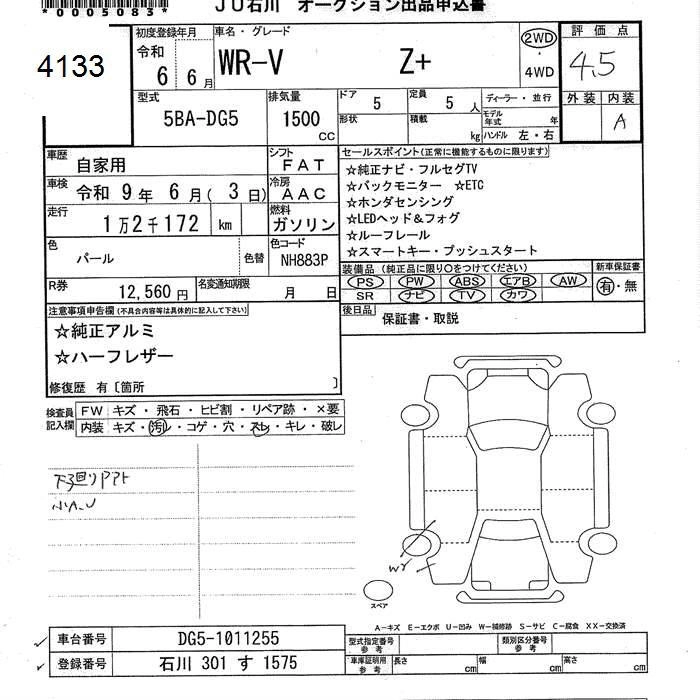 *0005083*
JU石川 オークション出品申込書
4133
初度登録年月
令和
6 6月
車名・グレード
WR-V Z+
2WD
・
4WD
評価点
4.5
型式
5BA-DG5
排気量
1500
CC
ドア
5
定員
5人
ディーラー・並行
形状
積載
kg
モデル年式 年
ハンドル 左・右
外装 内装
A
車歴
自家用
シフト
FAT
車検
令和 9年 6月( 3日)
冷房
AAC
走行
1万2千172 km
燃料
ガソリン
色
パール
色替
色コード
NH883P
R券
12,560円
名変通知期限
月 日
セールスポイント(正常に機能するものに限ります)
☆純正ナビ・フルセグTV
☆バックモニター ☆ETC
☆ホンダセンシング
☆LEDヘッド&フォグ
☆ルーフレール
☆スマートキー・プッシュスタート
装備品(純正品に限り〇をつけてください)
PS PW ABS エアB AW
SR ナビ TV カワ
新車保証書
有・無
後日品
保証書・取説
注意事項申告欄(不具合内容等は具体的に記入して下さい)
☆純正アルミ
☆ハーフレザー
修復歴 有〔箇所 〕
検査員
記入欄
FW キズ・飛石・ヒビ割・リペア跡・×要
内装 キズ・汚レ・コゲ・穴・スレ・キレ・破レ
小A、U
W
スペア
A-キズ E-エクボ U-凹み W-補修跡 S-サビ C-腐食 XX-交換済
車台番号
DG5-1011255
登録番号
石川 301 す 1575
型式指定番号
参考
類別区分番号
参考
車庫証明用
参考
長さ cm
幅 cm
高さ cm